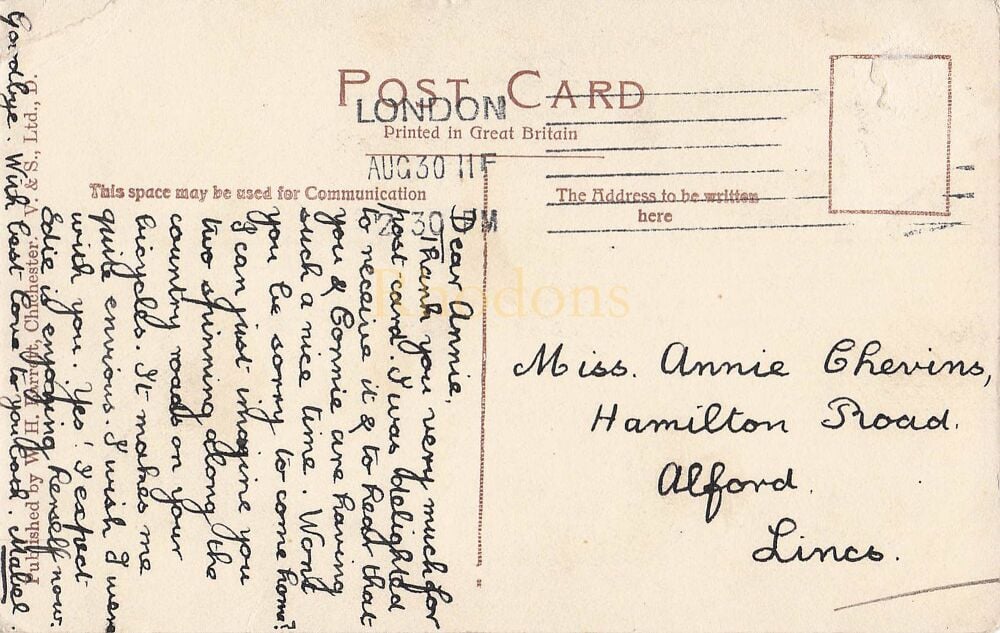 POST CARD
LONDON
Printed in Great Britain
AUG 30 11
30 PM
This space may be used for Communication
The Address to be written
here
Dear Annie,
Thank you very much for
post card. I was delighted
to receive it & to hear that
you & Connie are having
such a nice time. Wont
you be sorry to come home?
I can just imagine you
two spinning along the
country roads on your
bicycles. It makes me
quite envious. I wish I were
with you. Yes! I expect
Edie is enjoying herself now.
Goodbye. With best love to you both. Mabel.
Miss. Annie Chevins,
Hamilton Road.
Alford.
Lincs.
Published by W. H. Barrett, Chichester. V. & S., Ltd., D.
Rhodons